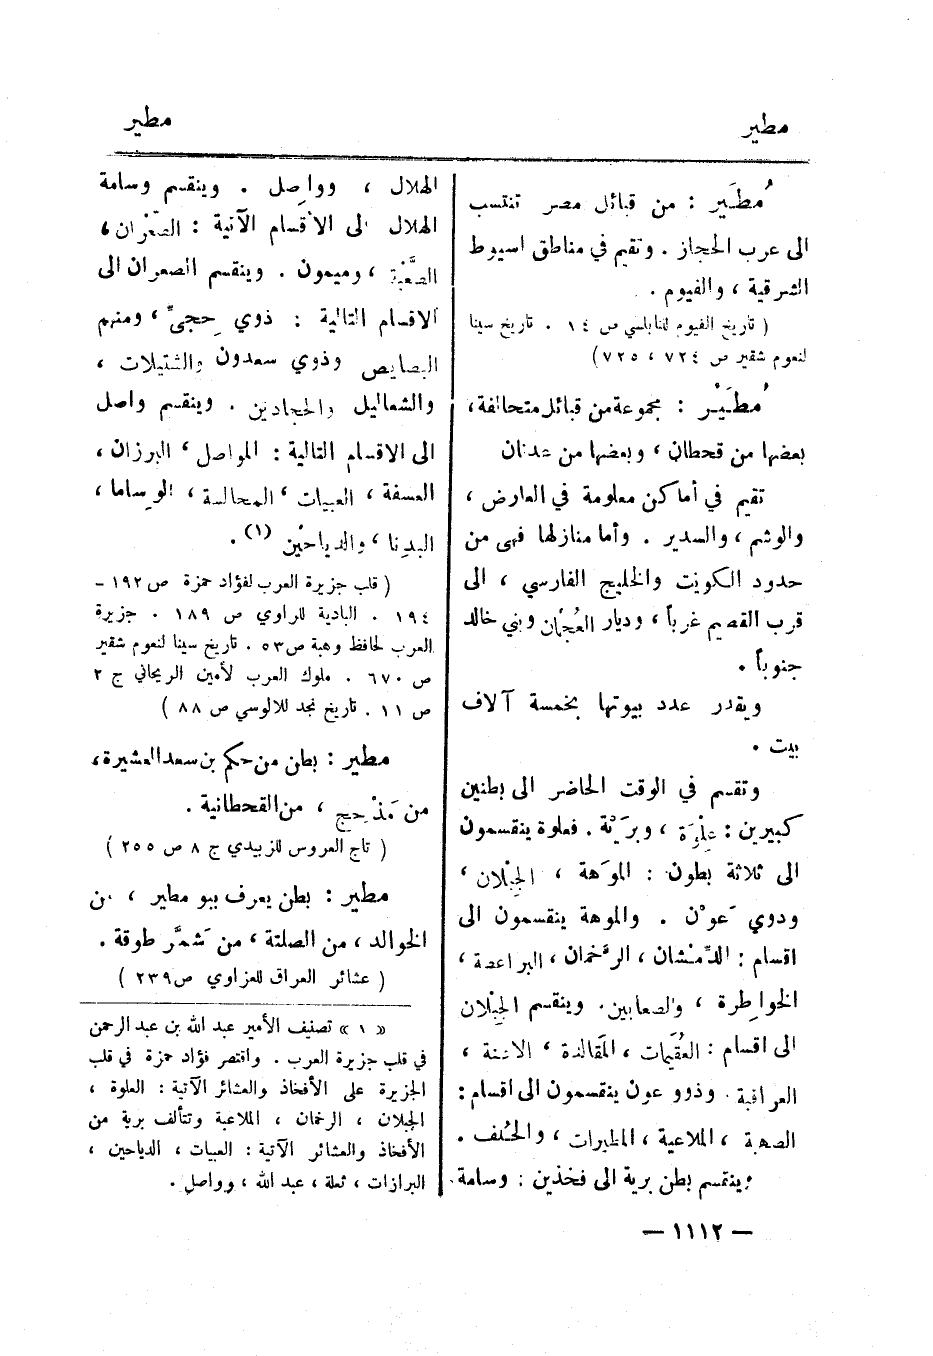 مطير
مطير
مُطَير : من قبائل مصر تنتسب
الى عرب الحجاز . وتقيم في مناطق اسيوط
الشرقية ، والفيوم .
( تاريخ الفيوم للنابلسي ص ١٤ . تاريخ سينا
لنعوم شقير ص ٧٢٤ ، ٧٢٥)
مُطَيْر : مجموعة من قبائل متحالفة ،
بعضها من قحطان ، وبعضها من عدنان
تقيم في أماكن معلومة في العارض ،
والوشم ، والسدير . وأما منازلها فهى من
حدود الكويت والخليج الفارسي ، الى
قرب القصيم غرباً ، وديار العُجْمان وبني خالد
جنوباً .
ويقدر عدد بيوتها بخمسة آلاف
بيت .
وتقسم في الوقت الحاضر الى بطنين
كبيرين : عِلْوَة ، وبرَيْة . فعلوة ينقسمون
الى ثلاثة بطون : الموَهة ، الجِبْلان ،
ودوي عَوْن . والموهة ينقسمون الى
اقسام : الدِّمْشان ، الرُّخمان ، البراعصة ،
الخواطِرة ، والصعابين . وينقسم الجِبْلان
الى اقسام : العُقَيمات ، المَقالدة ، الاننة ،
العراقبة . وذوو عون ينقسمون الى اقسام :
الصهبة ، الملاعبة ، المطيرات ، والحُنلف .
وينقسم بطن برية الى فخذين : وسامة
الهلال ، وواصِل . وينقسم وسامة
الهلال الى الأقسام الآتية : الصِّعْران ،
الصَّعْبَة ، وميمون . وينقسم الصعران الى
الاقسام التالية : ذوي حِجيّ ، ومنهم
البصايص وذوي سعدون والشتيلات ،
والشعاليل والحجادين . وينقسم واصل
الى الاقسام التالية : المواصل ، البرزان ،
العسفة ، العبيات ، المحالسة ، الوساما ،
البدنا ، والدياحْين (١) .
( قلب جزيرة العرب لفؤاد حمزة ص ١٩٢ -
١٩٤ . البادية للراوي ص ١٨٩ . جزيرة
العرب لحافظ وهبة ص ٥٣ . تاريخ سينا لنعوم شقير
ص ٦٧٠ . ملوك العرب لأمين الريحاني ج ٢
ص ١١ . تاريخ نجد للالوسي ص ٨٨ )
مطير : بطن من حكم بن سعد العشيرة ،
من مَذْحِج ، من القحطانية .
( تاج العروس للزبيدي ج ٨ ص ٢٥٥ )
مطير : بطن يعرف ببو مطير ، من
الخوالد ، من الصلتة ، من شَمَّر طوقة .
( عشائر العراق للعزاوي ص ٢٣٩ )
« ١ » تصنيف الأمير عبد الله بن عبد الرحمن
في قلب جزيرة العرب . واقتصر فؤاد حمزة في قلب
الجزيرة على الأفخاذ والعشائر الآتية : العلوة ،
الجبلان ، الرخمان ، الملاعبة وتتألف برية من
الأفخاذ والعشائر الآتية : العبيات ، الدياحين ،
البرازات ، ثعلة ، عبد الله ، وواصل .
— ١١١٢ —